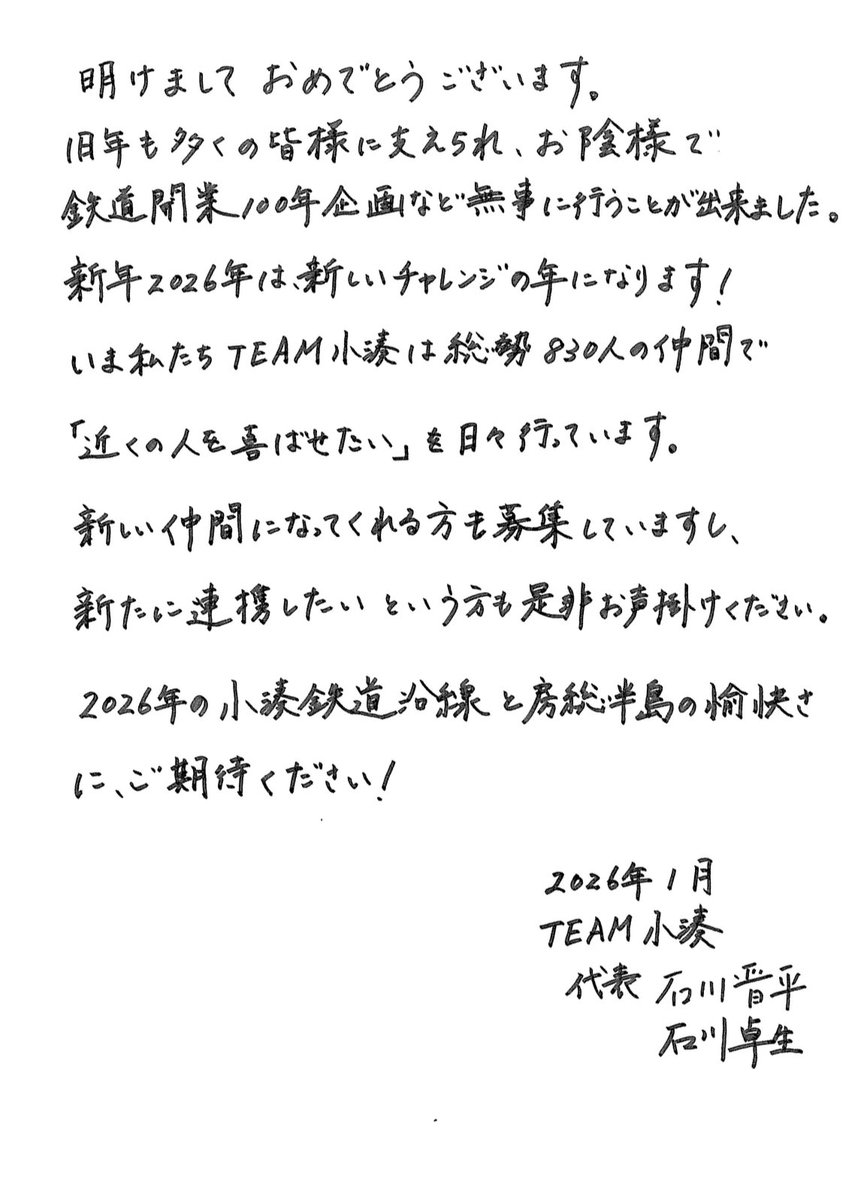 明けまして おめでとうございます。
旧年も多くの皆様に支えられ、お陰様で
鉄道開業100年企画など無事に行うことが出来ました。
新年2026年は、新しいチャレンジの年になります!
いま私たち TEAM小湊は総勢 830人の仲間で
「近くの人を喜ばせたい」を日々行っています。
新しい仲間になってくれる方も募集していますし、
新たに連携したい という方も是非お声掛けください。
2026年の小湊鉄道沿線と房総半島の愉快さ
に、ご期待ください!
2026年1月
TEAM小湊
代表 石川晋平
石川卓生